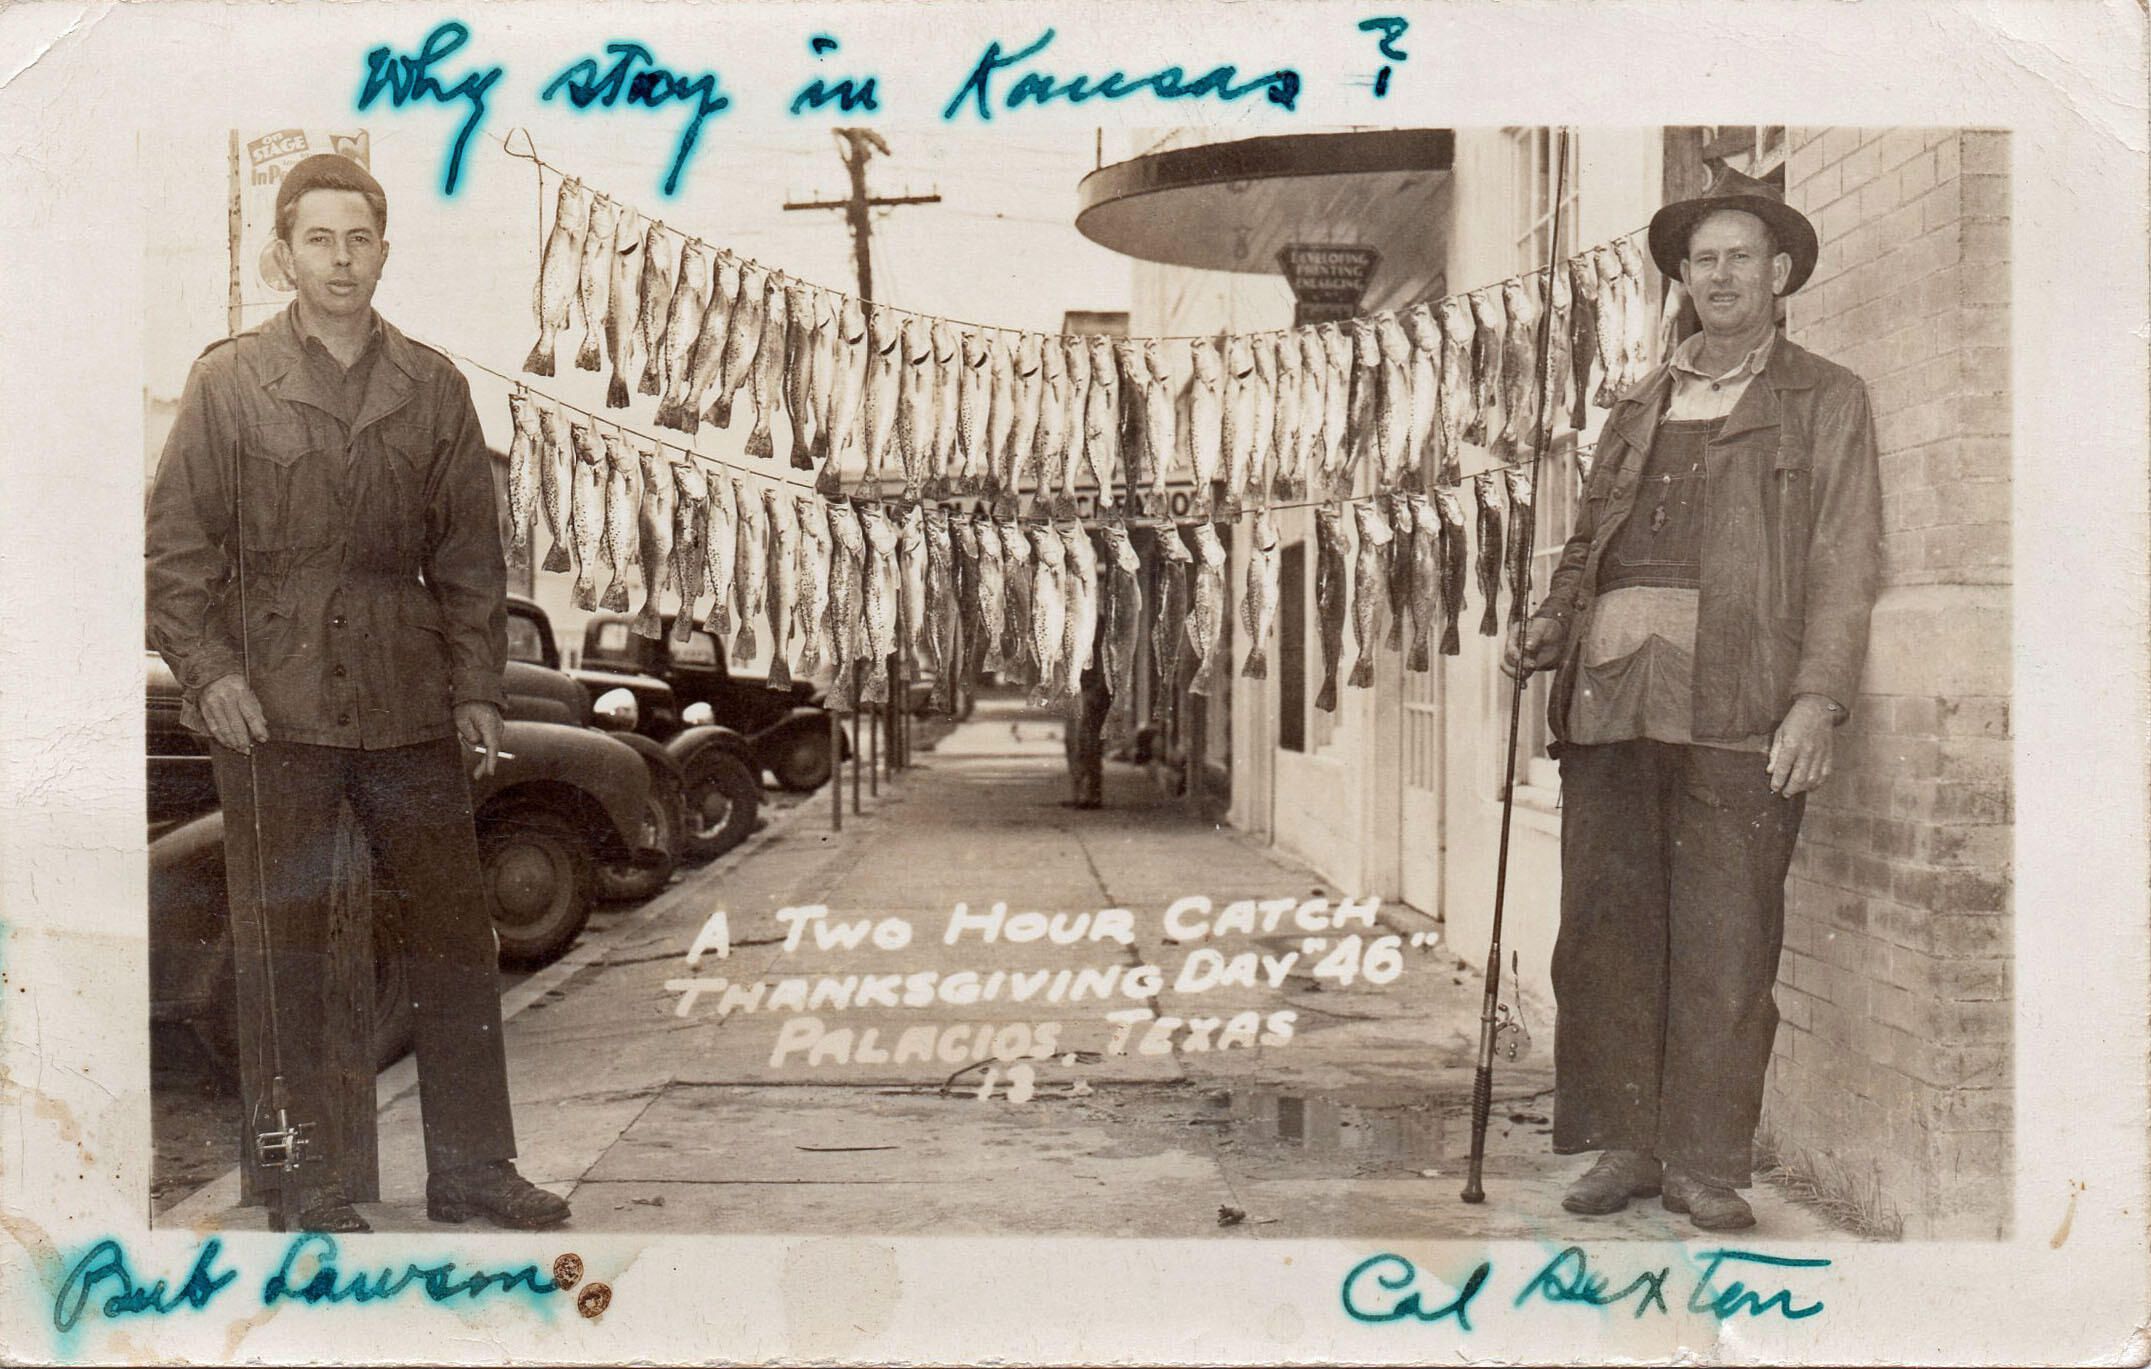 Why stay in Kansas?
ON
STAGE
In
DEVELOPING
PRINTING
ENLARGING
A TWO HOUR CATCH
THANKSGIVING DAY "46"
PALACIOS, TEXAS
13
Bub Lawson
Cal Sexton